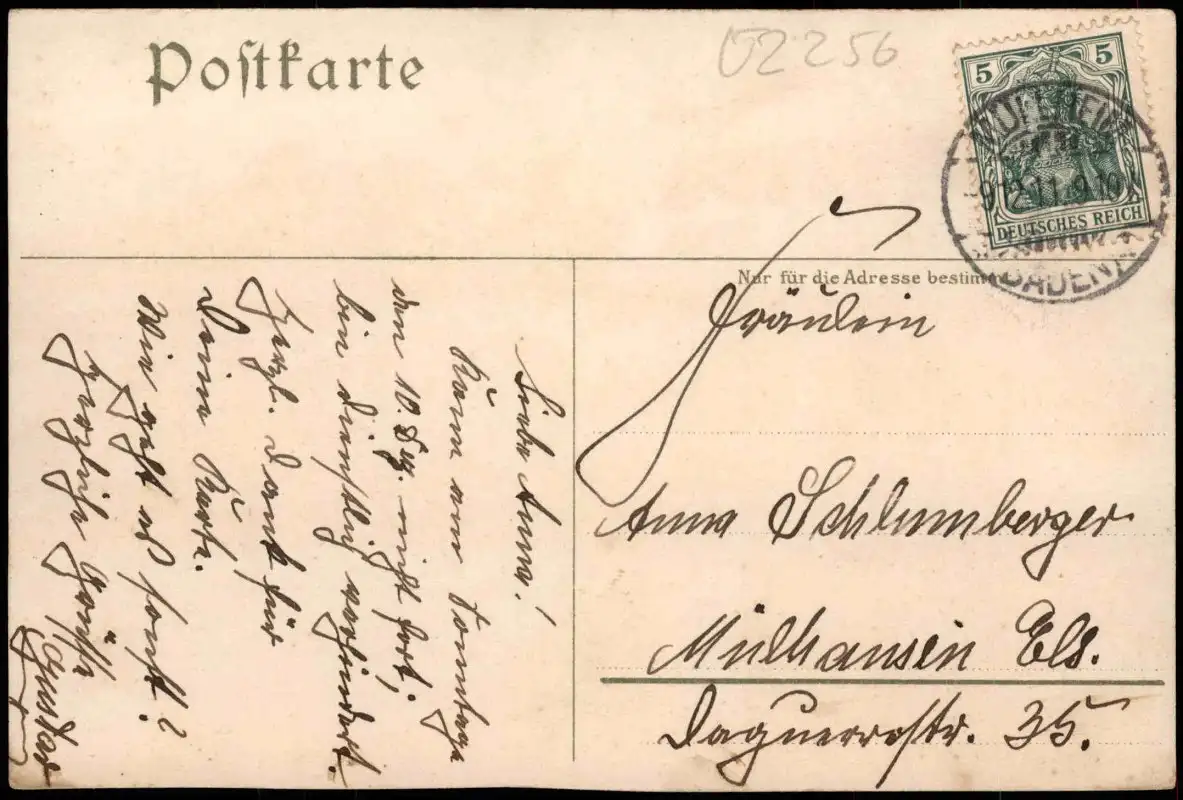 Postkarte
02256
5 5
DEUTSCHES REICH
MÜLLHEIM
9.12.11.9-10
BADEN
Nur für die Adresse bestimmt
Fräulein
Anna Schlumberger
Mülhausen Els.
Daguerrestr. 35.
Liebe Anna!
Kann am Sonntage
den 10. Dez. nicht fort,
bin dienstlig verhindert.
Herzl. Dank für
Deine Karte.
Wie geht es sonst?
Herzliche Grüsse
Gustav